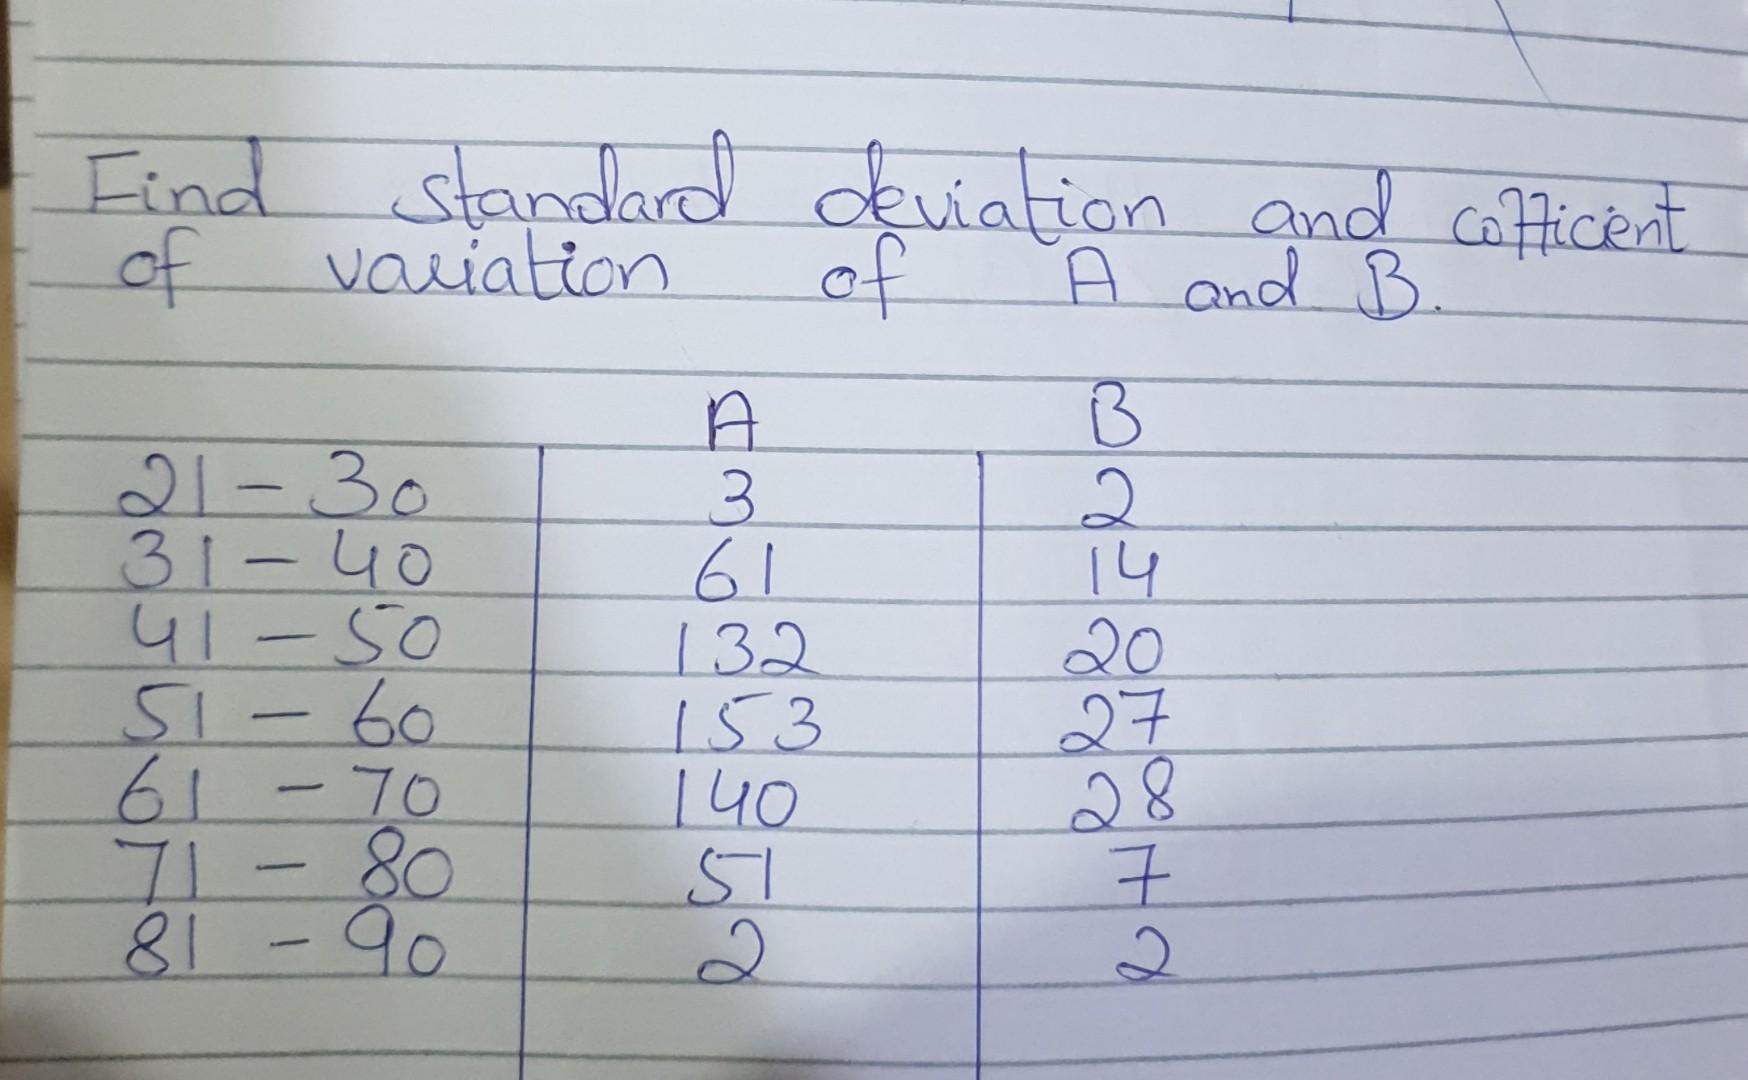 Find standard deviation and cofficient
of variation of A and B.
A B
21 - 30 3 2
31 - 40 61 14
41 - 50 132 20
51 - 60 153 27
61 - 70 140 28
71 - 80 51 7
81 - 90 2 2